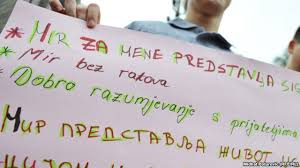 * MIR ZA MENE PREDSTAVLJA SIG
* Mir bez ratova
* Dobro razumjevanje s prijateljima
* МИР ПРЕДСТАВЉА ЖИВОТ